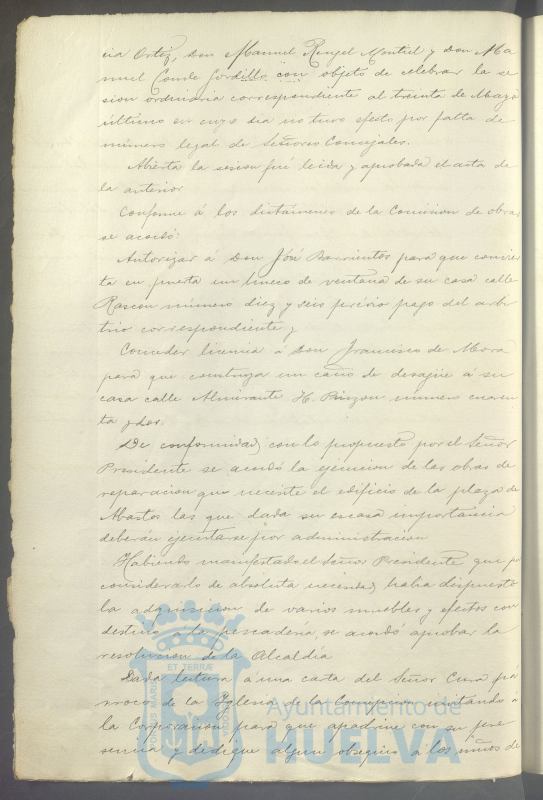 cia Ortiz, Don Manuel Rengel Montiel y Don Ma
nuel Conde Gordillo con objeto de celebrar la se
sion ordinaria correspondiente al treinta de Mayo
último en cuyo dia no tuvo efecto por falta de
número legal de Señores Concejales.
Abierta la sesion fué leida y aprobada el acta de
la anterior
Conforme á los dictámenes de la Comision de obras
se acordó:
Autorizar á Don José Barrientos para que convier
ta en puerta un hueco de ventana de su casa calle
Rascon número diez y seis previo pago del arbi
trio correspondiente y
Conceder licencia á Don Francisco de Mora
para que construya un caño de desagüe á su
casa calle Almirante H. Pinzon número cuaren
ta y dos.
De conformidad con lo propuesto por el Señor
Presidente se acordó la ejecucion de las obras de
reparacion que necesite el edificio de la plaza de
Abastos las que dada su escasa importancia
deberán ejecutarse por administracion
Habiendo manifestado el Señor Presidente que por
considerarlo de absoluta necesidad habia dispuesto
la adquisicion de varios muebles y efectos con
destino á la pescadería, se acordó aprobar la
resolucion de la Alcaldía
Dada lectura á una carta del Señor Cura pá
rroco de la Iglesia de la Concepcion invitando á
la Corporacion para que apadrine con su pre
sencia y dedique algun obsequio á los niños de
ET TERRÆ
Ayuntamiento de
HUELVA